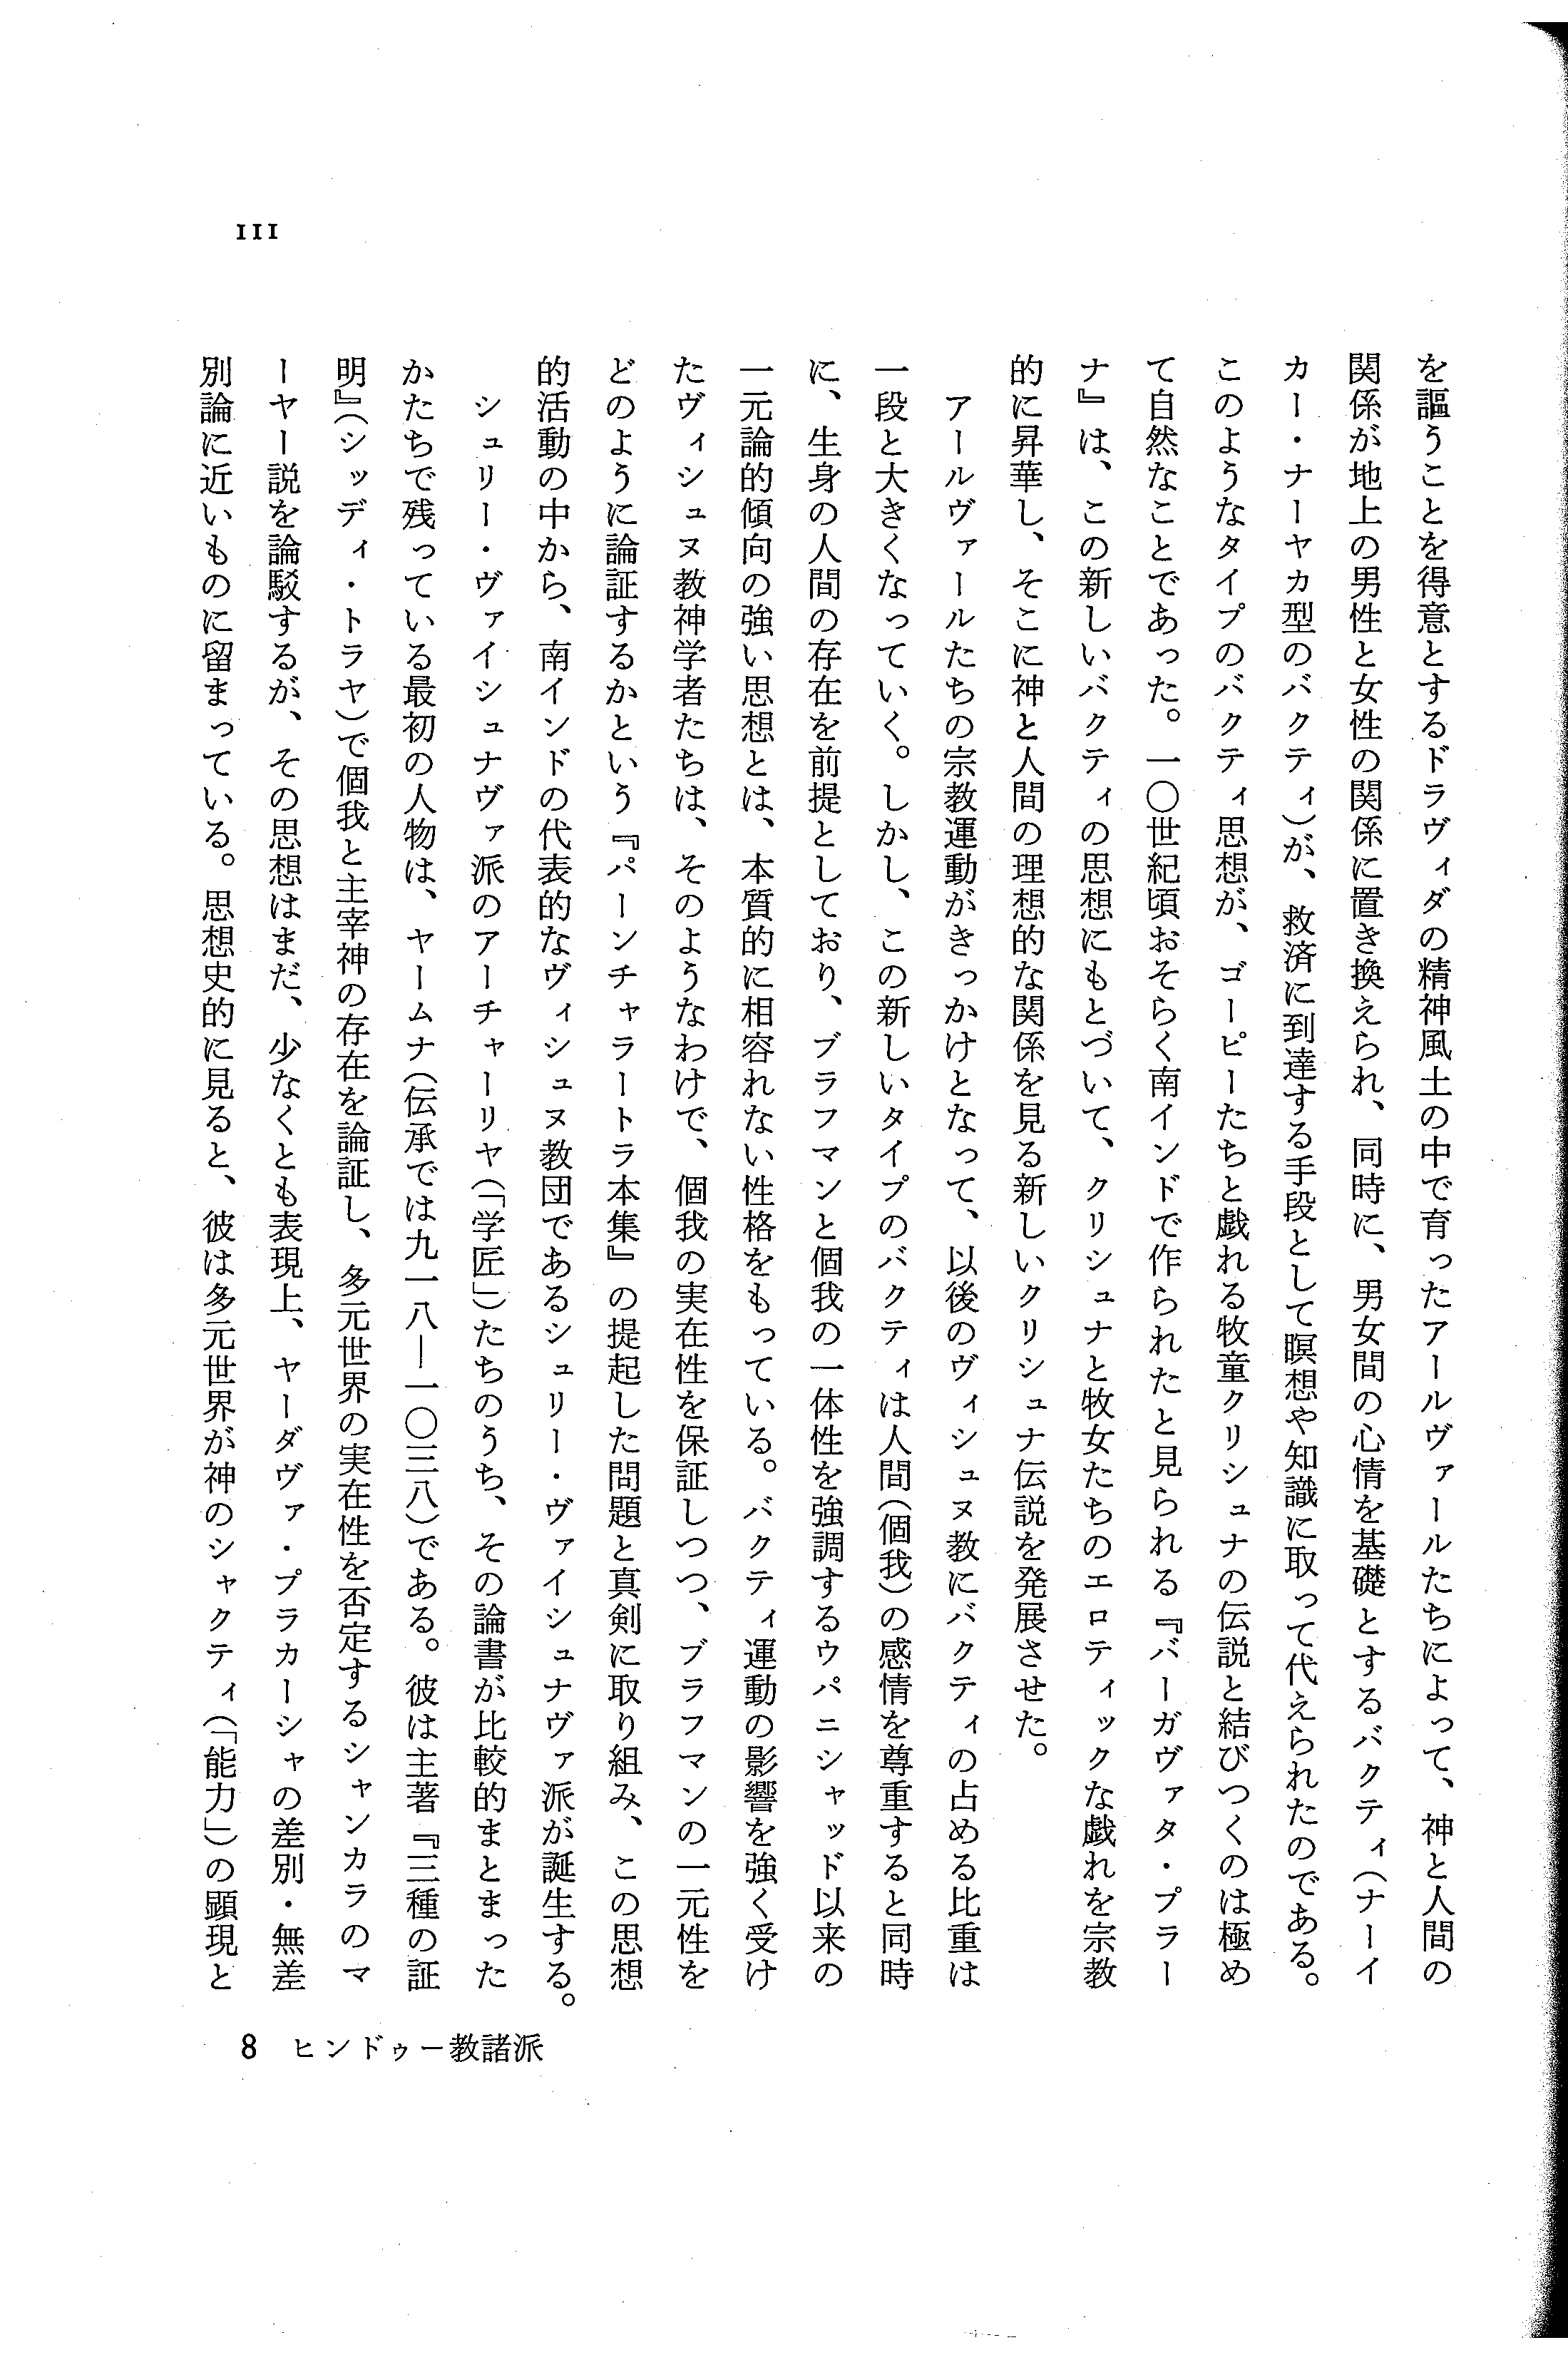 111
を謳うことを得意とするドラヴィダの精神風土の中で育ったアールヴァールたちによって、神と人間の
関係が地上の男性と女性の関係に置き換えられ、同時に、男女間の心情を基礎とするバクティ(ナーイ
カー・ナーヤカ型のバクティ)が、救済に到達する手段として瞑想や知識に取って代えられたのである。
このようなタイプのバクティ思想が、ゴーピーたちと戯れる牧童クリシュナの伝説と結びつくのは極め
て自然なことであった。一〇世紀頃おそらく南インドで作られたと見られる『バーガヴァタ・プラー
ナ』は、この新しいバクティの思想にもとづいて、クリシュナと牧女たちのエロティックな戯れを宗教
的に昇華し、そこに神と人間の理想的な関係を見る新しいクリシュナ伝説を発展させた。
アールヴァールたちの宗教運動がきっかけとなって、以後のヴィシュヌ教にバクティの占める比重は
一段と大きくなっていく。しかし、この新しいタイプのバクティは人間(個我)の感情を尊重すると同時
に、生身の人間の存在を前提としており、ブラフマンと個我の一体性を強調するウパニシャッド以来の
一元論的傾向の強い思想とは、本質的に相容れない性格をもっている。バクティ運動の影響を強く受け
たヴィシュヌ教神学者たちは、そのようなわけで、個我の実在性を保証しつつ、ブラフマンの一元性を
どのように論証するかという『パーンチャラートラ本集』の提起した問題と真剣に取り組み、この思想
的活動の中から、南インドの代表的なヴィシュヌ教団であるシュリー・ヴァイシュナヴァ派が誕生する。
シュリー・ヴァイシュナヴァ派のアーチャーリヤ(「学匠」)たちのうち、その論書が比較的まとまった
かたちで残っている最初の人物は、ヤームナ(伝承では九一八―一〇三八)である。彼は主著『三種の証
明』(シッディ・トラヤ)で個我と主宰神の存在を論証し、多元世界の実在性を否定するシャンカラのマ
ーヤー説を論駁するが、その思想はまだ、少なくとも表現上、ヤーダヴァ・プラカーシャの差別・無差
別論に近いものに留まっている。思想史的に見ると、彼は多元世界が神のシャクティ(「能力」)の顕現と
8 ヒンドゥー教諸派